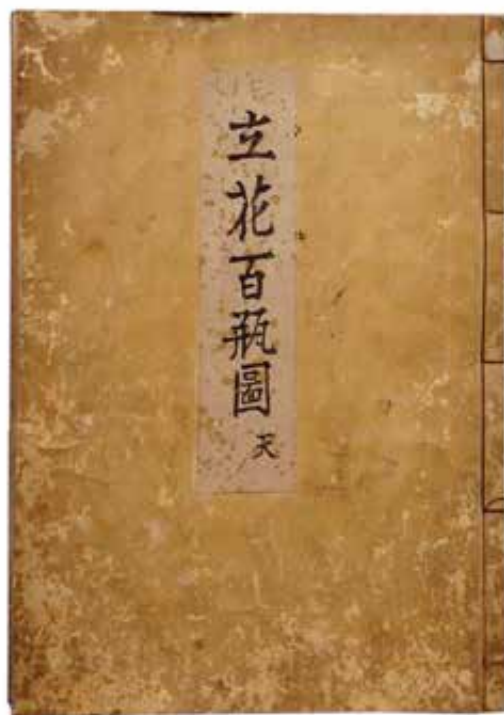 立花百瓶圖 天